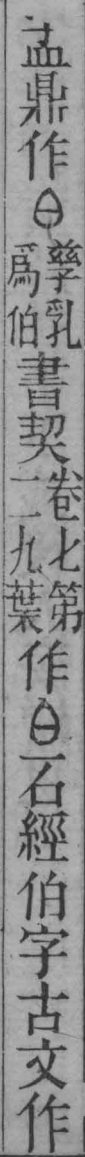 盂鼎作孳乳爲伯書契卷七第二九葉作石經伯字古文作